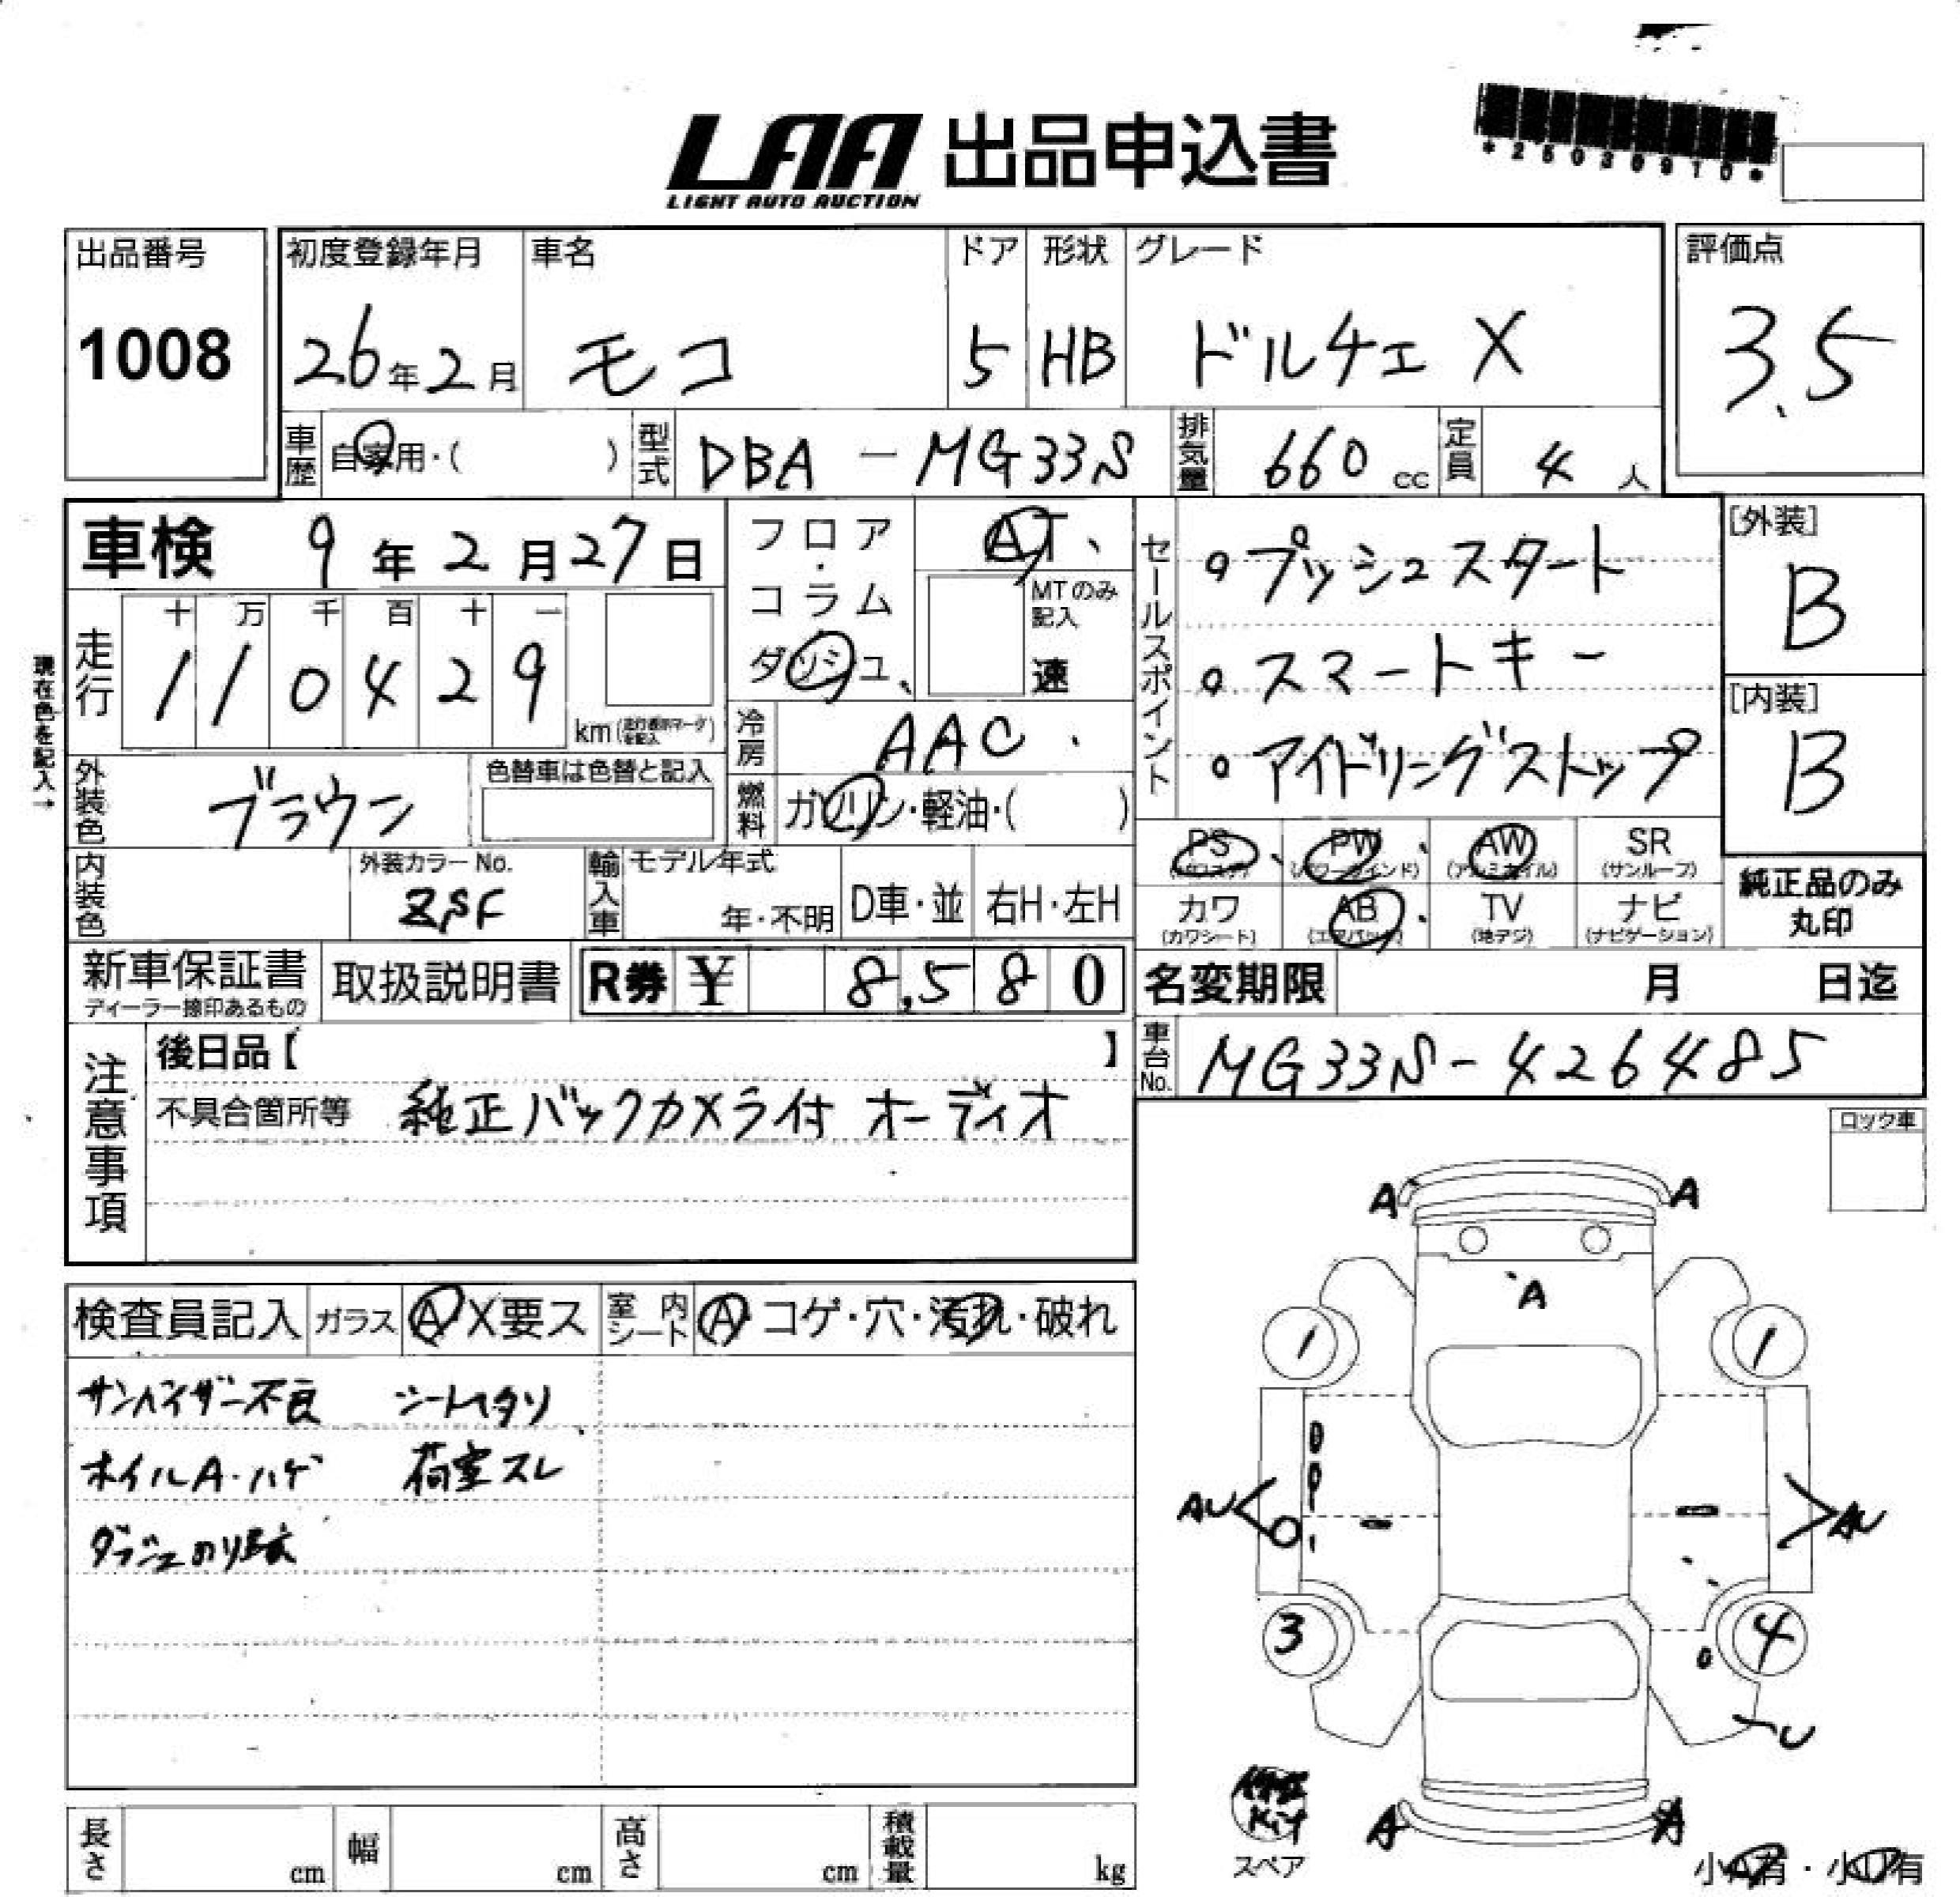 LAA 出品申込書
LIGHT AUTO AUCTION
*25030910*
出品番号
1008
初度登録年月
26年2月
車名
モコ
ドア
5
形状
HB
グレード
ドルチェ X
評価点
3.5
車歴
自家用・( )
型式
DBA-MG33S
排気量
660 cc
定員
4人
車検 9年2月27日
現在色を記入→
走行
十 万 千 百 十 一
1 1 0 4 2 9
km
フロア・
コラム
ダッシュ
AT
MTのみ記入
速
冷房
AAC
燃料
ガソリン・軽油・( )
セールスポイント
。プッシュスタート
。スマートキー
。アイドリングストップ
[外装]
B
[内装]
B
外装色
ブラウン
色替車は色替と記入
内装色
外装カラーNo.
ZSF
輸入車
モデル年式
年・不明
D車・並
右H・左H
PS
PW
AW
(アルミホイル)
SR
(サンルーフ)
カワ
(カワシート)
AB
(エアバッグ)
TV
(地デジ)
ナビ
(ナビゲーション)
純正品のみ
丸印
新車保証書
取扱説明書
R券 ¥ 8,580
名変期限 月 日迄
車台No.
MG33S-426485
注意事項
後日品【 】
不具合箇所等 純正バックカメラ付 オーディオ
ロック車
検査員記入
ガラス
A X要ス
室内シート
A・コゲ・穴・汚れ・破れ
サンバイザー不良 シートヘタリ
ホイルA・ハゲ 荷室スレ
ダッシュのり跡
A A
A
1 1
AU AU
3 4
U
A A
修理
Kit
スペア
小A有・小U有
長さ cm
幅 cm
高さ cm
積載量 kg